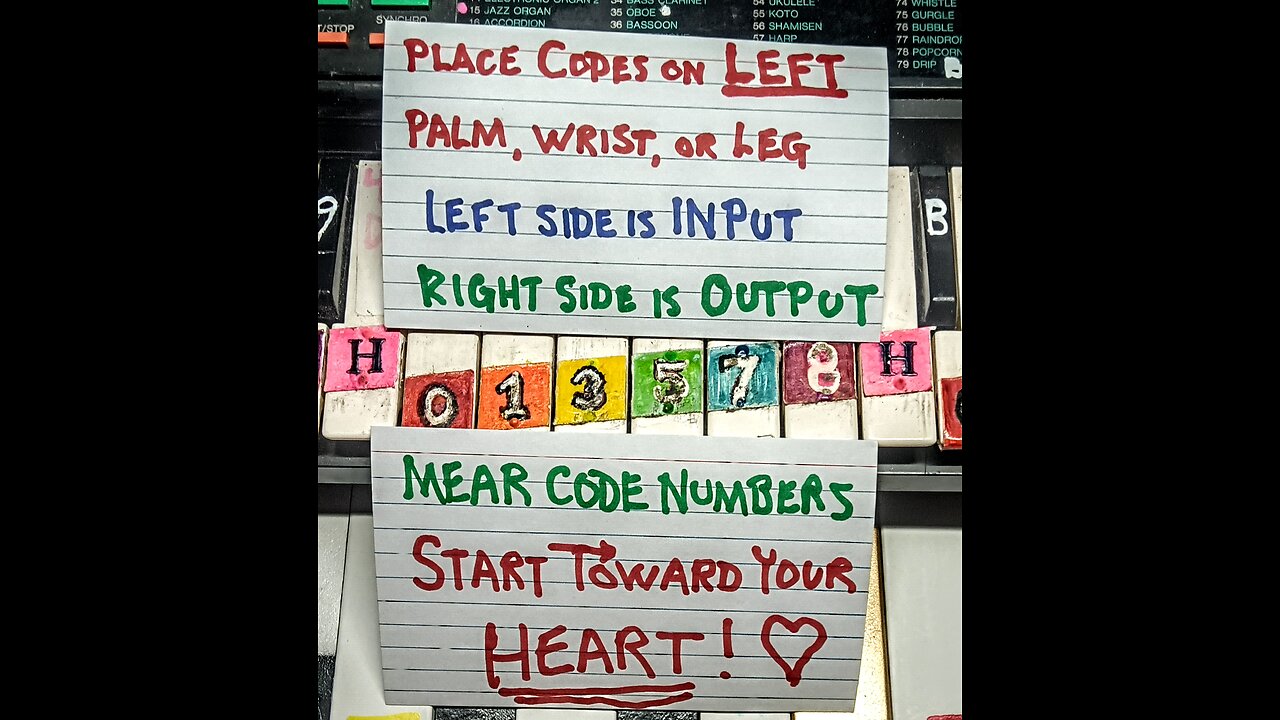 15 JAZZ ORGAN
16 ACCORDION
34 BASS CLARINET
35 OBOE
36 BASSOON
54 UKULELE
55 KOTO
56 SHAMISEN
57 HARP
74 WHISTLE
75 GURGLE
76 BUBBLE
77 RAINDROP
78 POPCORN
79 DRIP
SYNCHRO
/STOP
PLACE CODES ON LEFT
PALM, WRIST, OR LEG
LEFT SIDE IS INPUT
RIGHT SIDE IS OUTPUT
9
B
H 0 1 3 5 7 8 H
MEAR CODE NUMBERS
START TOWARD YOUR
HEART!